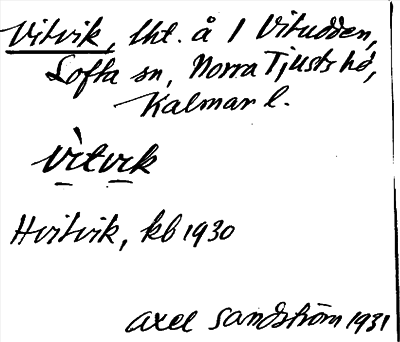 Vitvik, lht. å 1 Vitudden,
Lofta sn, Norra Tjusts hd,
Kalmar l.
vìtvik
Hvitvik, kb 1930
Axel Sandström 1931